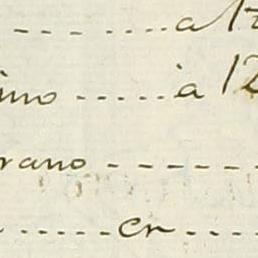 - - - - ..... a 1
ino ...... à 12
rano - - - - - - -
..... er .....